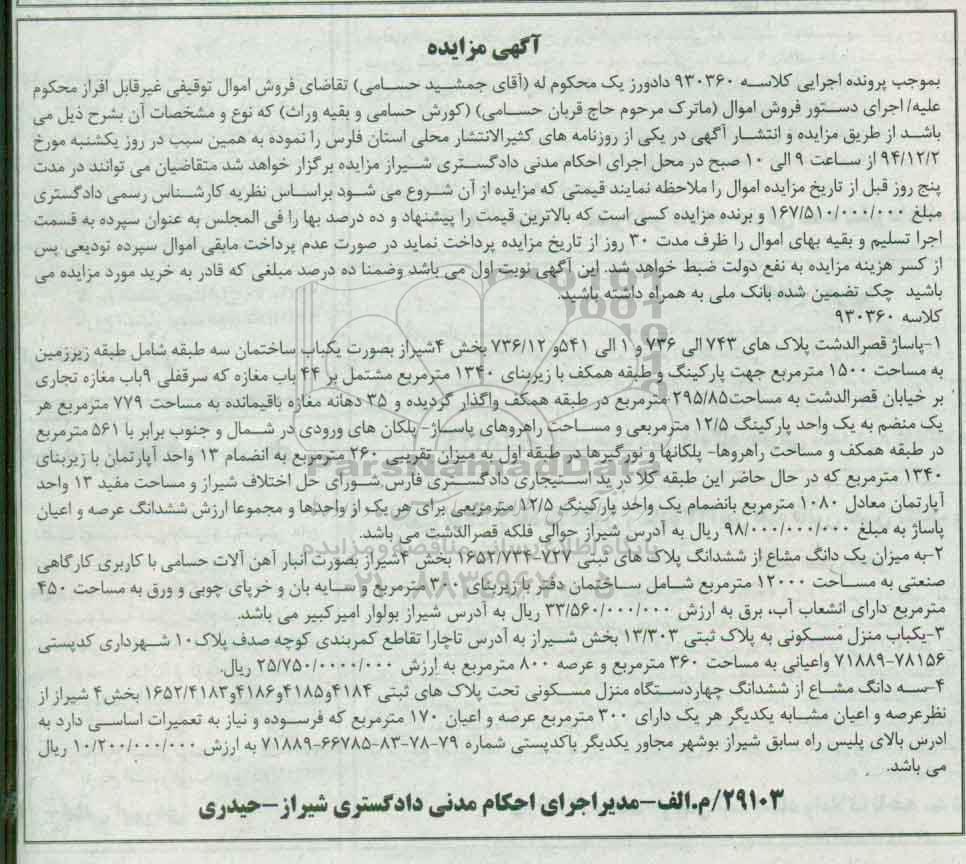 آگهی مزایده
بموجب پرونده اجرایی کلاسه ۹۳۰۳۶۰ دادورز یک محکوم له (آقای جمشید حسامی) تقاضای فروش اموال توقیفی غیرقابل افراز محکوم
علیه/ اجرای دستور فروش اموال (ماترک مرحوم حاج قربان حسامی) (کورش حسامی و بقیه وراث) که نوع و مشخصات آن بشرح ذیل می
باشد از طریق مزایده و انتشار آگهی در یکی از روزنامه های کثیرالانتشار محلی استان فارس را نموده به همین سبب در روز یکشنبه مورخ
۹۴/۱۲/۲ از ساعت ۹ الی ۱۰ صبح در محل اجرای احکام مدنی دادگستری شیراز مزایده برگزار خواهد شد متقاضیان می توانند در مدت
پنج روز قبل از تاریخ مزایده اموال را ملاحظه نمایند قیمتی که مزایده از آن شروع می شود براساس نظریه کارشناس رسمی دادگستری
مبلغ ۱۶۷/۵۱۰/۰۰۰/۰۰۰ و برنده مزایده کسی است که بالاترین قیمت را پیشنهاد و ده درصد بها را فی المجلس به عنوان سپرده به قسمت
اجرا تسلیم و بقیه بهای اموال را ظرف مدت ۳۰ روز از تاریخ مزایده پرداخت نماید در صورت عدم پرداخت مابقی اموال سپرده تودیعی پس
از کسر هزینه مزایده به نفع دولت ضبط خواهد شد. این آگهی نوبت اول می باشد وضمنا ده درصد مبلغی که قادر به خرید مورد مزایده می
باشید چک تضمین شده بانک ملی به همراه داشته باشید.
کلاسه ۹۳۰۳۶۰
۱-پاساژ قصرالدشت پلاک های ۷۴۳ الی ۷۳۶ و ۱ الی ۵۴۱و ۷۳۶/۱۲ بخش ۴شیراز بصورت یکباب ساختمان سه طبقه شامل طبقه زیرزمین
به مساحت ۱۵۰۰ مترمربع جهت پارکینگ و طبقه همکف با زیربنای ۱۳۴۰ مترمربع مشتمل بر ۴۴ باب مغازه که سرقفلی ۹باب مغازه تجاری
بر خیابان قصرالدشت به مساحت۲۹۵/۸۵ مترمربع در طبقه همکف واگذار گردیده و ۳۵ دهانه مغازه باقیمانده به مساحت ۷۷۹ مترمربع هر
یک منضم به یک واحد پارکینگ ۱۲/۵ مترمربعی و مساحت راهروهای پاساژ- بلکان های ورودی در شمال و جنوب برابر با ۵۶۱ مترمربع
در طبقه همکف و مساحت راهروها- پلکانها و نورگیرها در طبقه اول به میزان تقریبی ۲۶۰ مترمربع به انضمام ۱۳ واحد آپارتمان با زیربنای
۱۳۴۰ مترمربع که در حال حاضر این طبقه کلا در ید استیجاری دادگستری فارس شورای حل اختلاف شیراز و مساحت مفید ۱۳ واحد
آپارتمان معادل ۱۰۸۰ مترمربع بانضمام یک واحد پارکینگ ۱۲/۵ مترمربعی برای هر یک از واحدها و مجموعا ارزش ششدانگ عرصه و اعیان
پاساژ به مبلغ ۹۸/۰۰۰/۰۰۰/۰۰۰ ریال به آدرس شیراز حوالی فلکه قصرالدشت می باشد.
۲-به میزان یک دانگ مشاع از ششدانگ پلاک های ثبتی ۷۲۷-۱۶۵۲/۷۲۴ بخش ۴شیراز بصورت انبار آهن آلات حسامی با کاربری کارگاهی
صنعتی به مساحت ۱۲۰۰۰ مترمربع شامل ساختمان دفتر با زیربنای ۳۰۰ مترمربع و سایه بان و خرپای چوبی و ورق به مساحت ۴۵۰
مترمربع دارای انشعاب آب، برق به ارزش ۳۳/۵۶۰/۰۰۰/۰۰۰ ریال به آدرس شیراز بولوار امیرکبیر می باشد.
۳-یکباب منزل مسکونی به پلاک ثبتی ۱۳/۳۰۳ بخش شیراز به آدرس تاچارا تقاطع کمربندی کوچه صدف پلاک۱۰ شهرداری کدپستی
۷۱۸۸۹-۷۸۱۵۶ واعیانی به مساحت ۳۶۰ مترمربع و عرصه ۸۰۰ مترمربع به ارزش ۲۵/۷۵۰/۰۰۰۰/۰۰۰ ریال.
۴-سه دانگ مشاع از ششدانگ چهاردستگاه منزل مسکونی تحت پلاک های ثبتی ۴۱۸۴و۴۱۸۵و۴۱۸۶و۱۶۵۲/۴۱۸۳ بخش۴ شیراز از
نظرعرصه و اعیان مشابه یکدیگر هر یک دارای ۳۰۰ مترمربع عرصه و اعیان ۱۷۰ مترمربع که فرسوده و نیاز به تعمیرات اساسی دارد به
ادرس بالای پلیس راه سابق شیراز بوشهر مجاور یکدیگر باکدپستی شماره ۷۹-۷۸-۸۳-۶۶۷۸۵-۷۱۸۸۹ به ارزش ۱۰/۲۰۰/۰۰۰/۰۰۰ ریال
می باشد.
۲۹۱۰۳/م.الف-مدیراجرای احکام مدنی دادگستری شیراز-حیدری
ParsNamadData